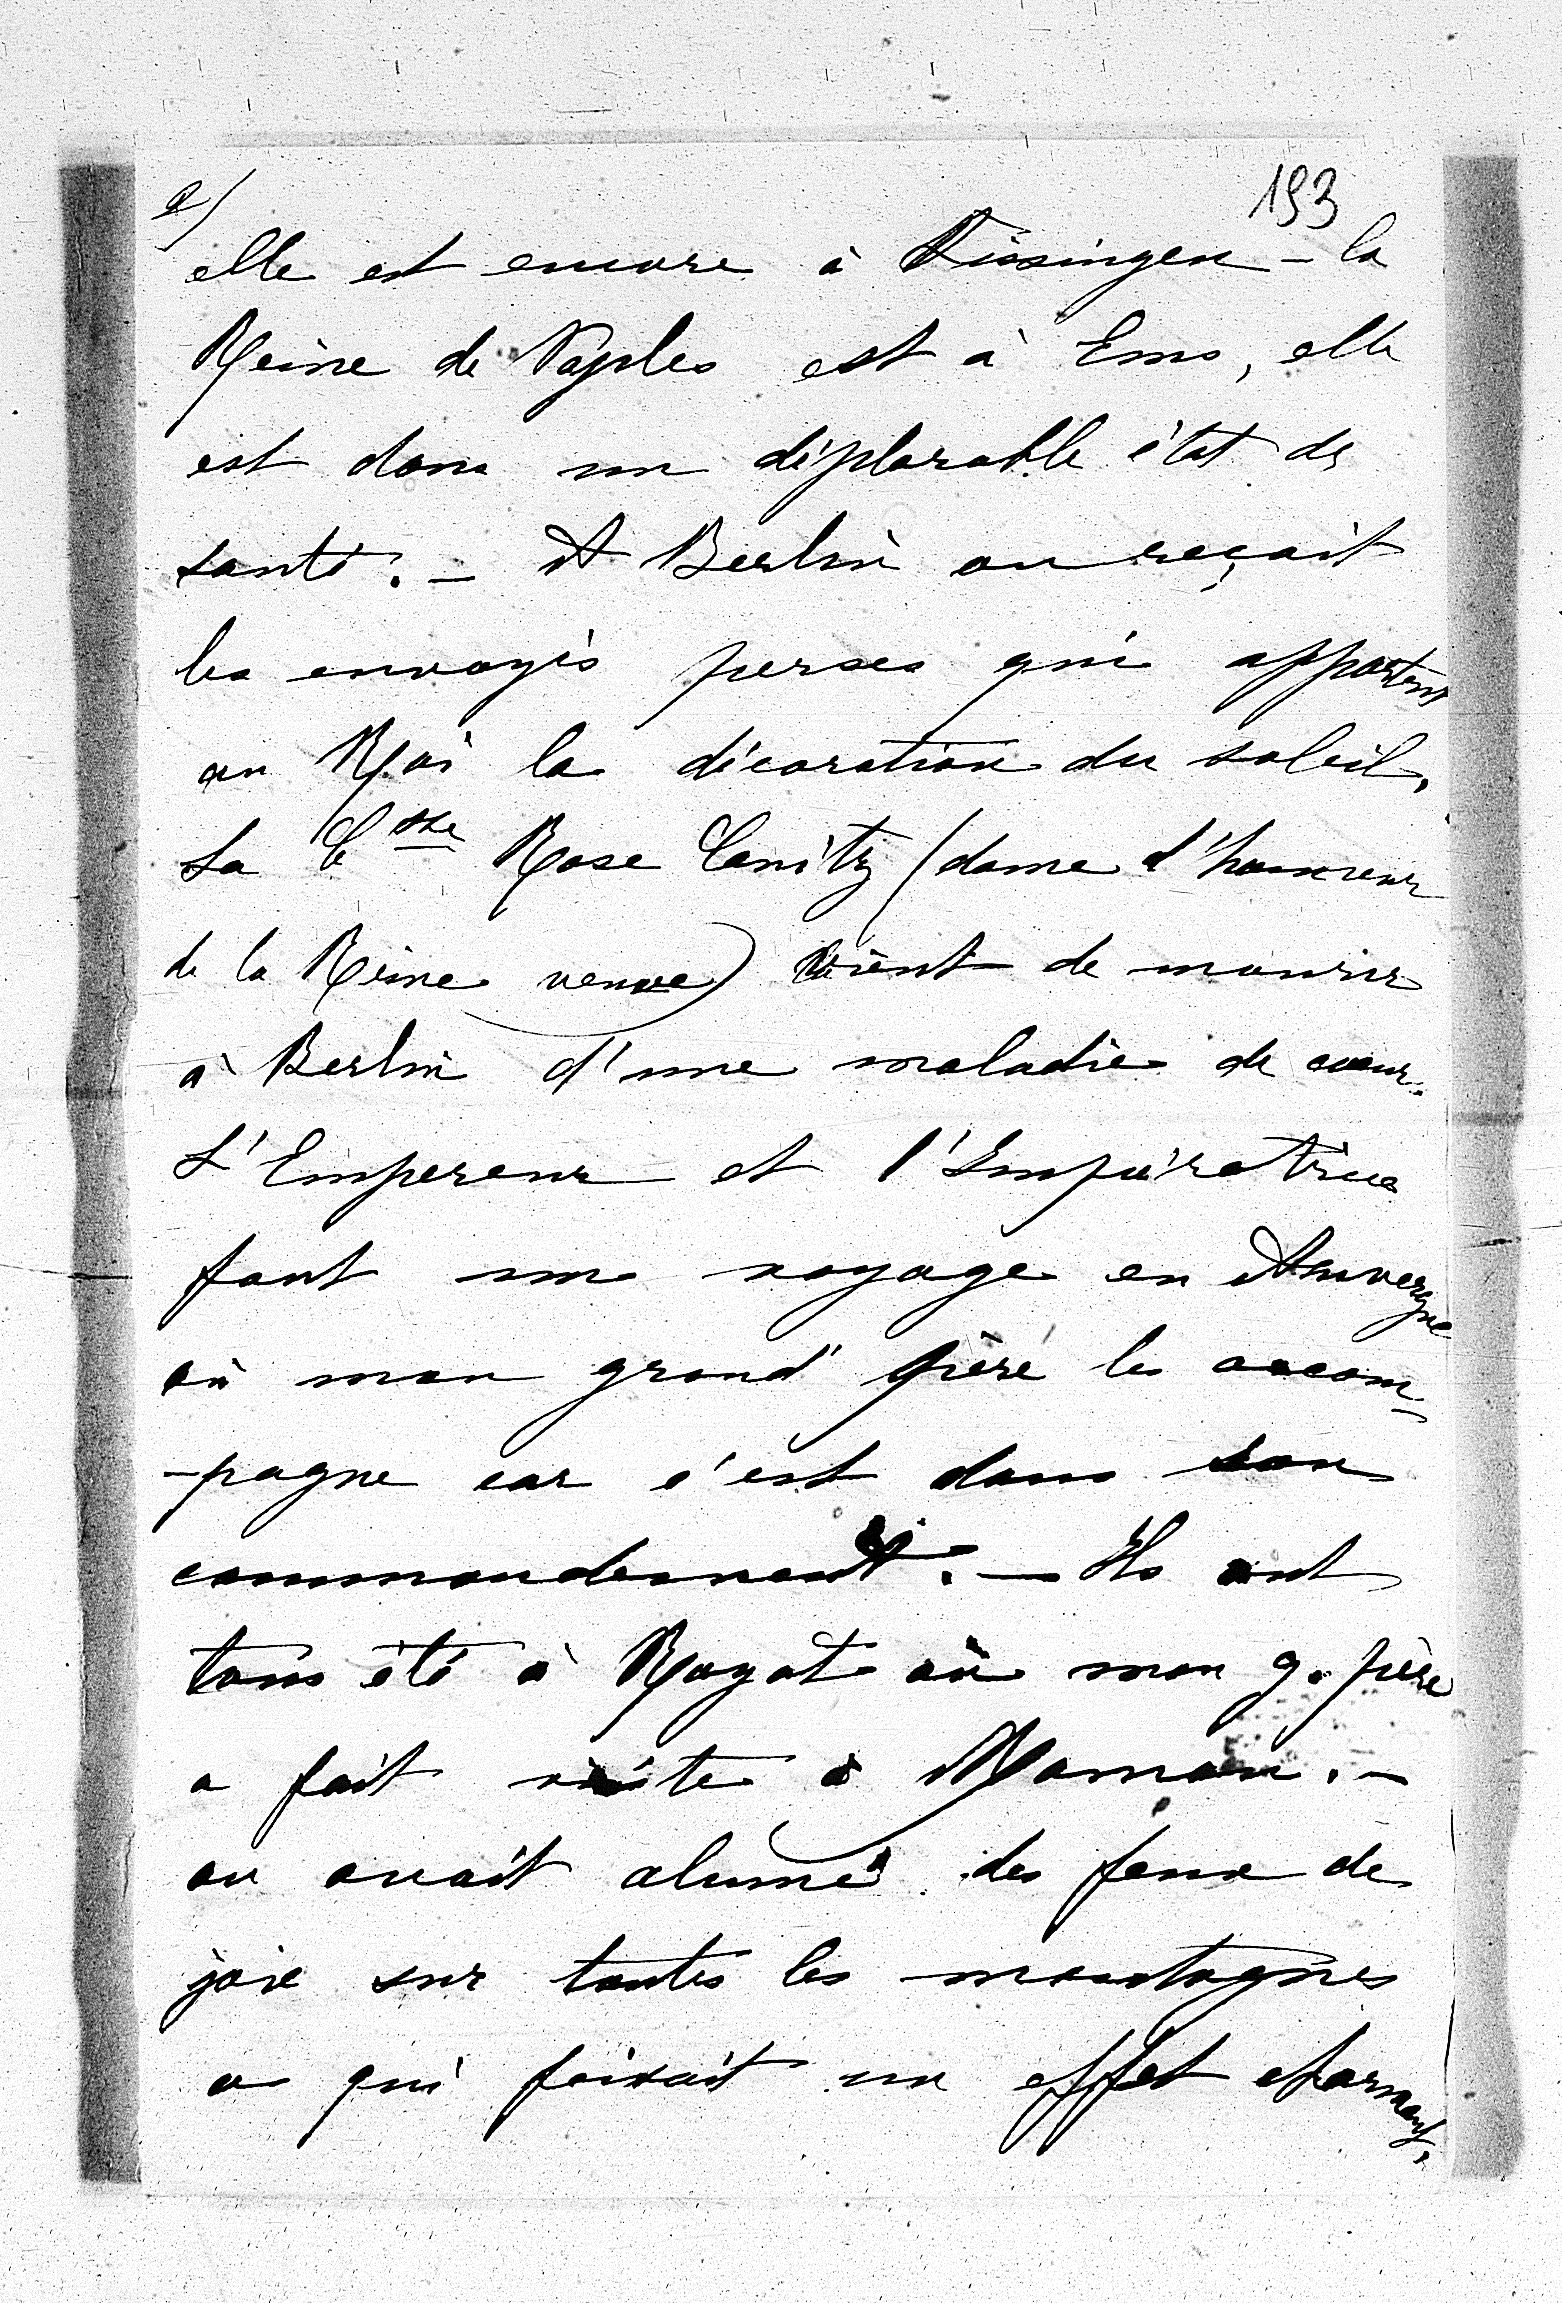 2)
193
elle est encore à Kissingen – la
Reine de Naples est à Ems, elle
est dans un déplorable état de
santé. – A Berlin on reçoit
les envoyés perses qui apportent
au Roi la décoration du soleil.
La Csse Rose Canitz (dame d'honneur
de la Reine veuve) vient de mourir
à Berlin d'une maladie de coeur.
L'Empereur et l'Impératrice
font un voyage en Auvergne
où mon grand' père les accom-
-pagne car c'est dans son
commandement. – Ils ont
tous été à Royat où mon g. père
a fait visite à Maman. –
on avait alumé des feux de
joie sur toutes les montagnes
ce qui faisait un effet charmant.